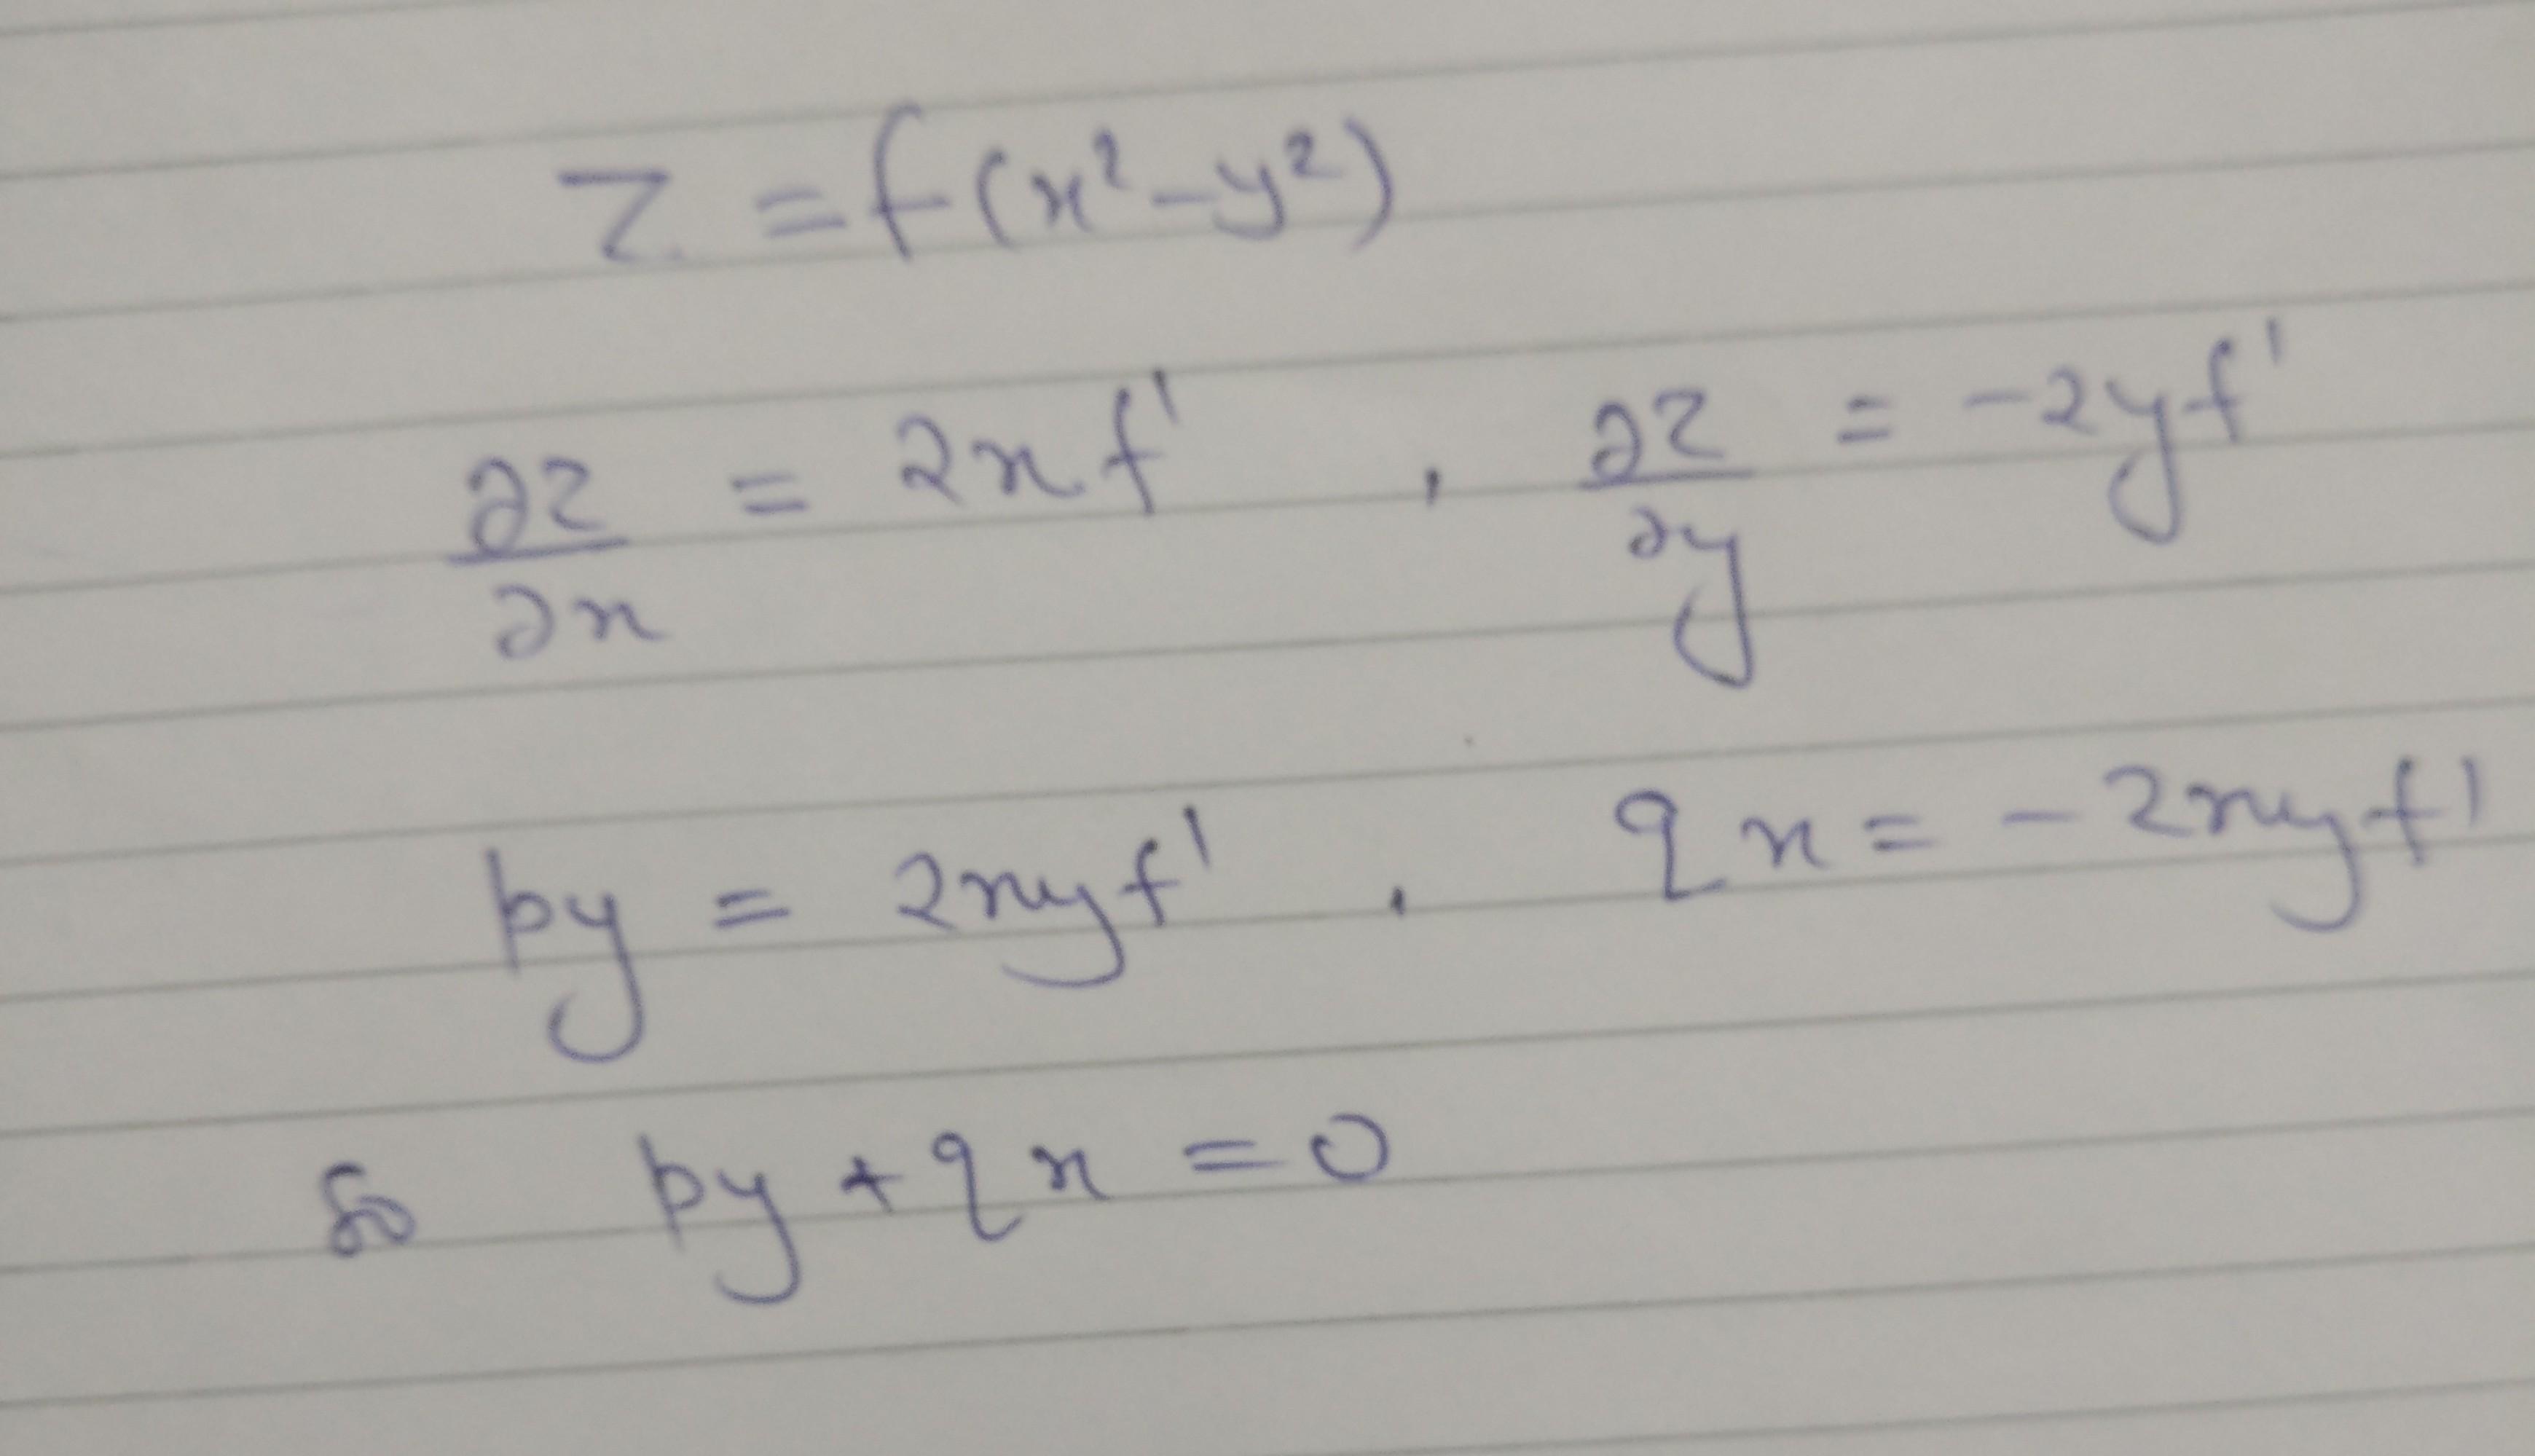 z = f(x²-y²)
∂z/∂x = 2xf' , ∂z/∂y = -2yf'
py = 2xyf' , qx = -2xyf'
So py + qx = 0